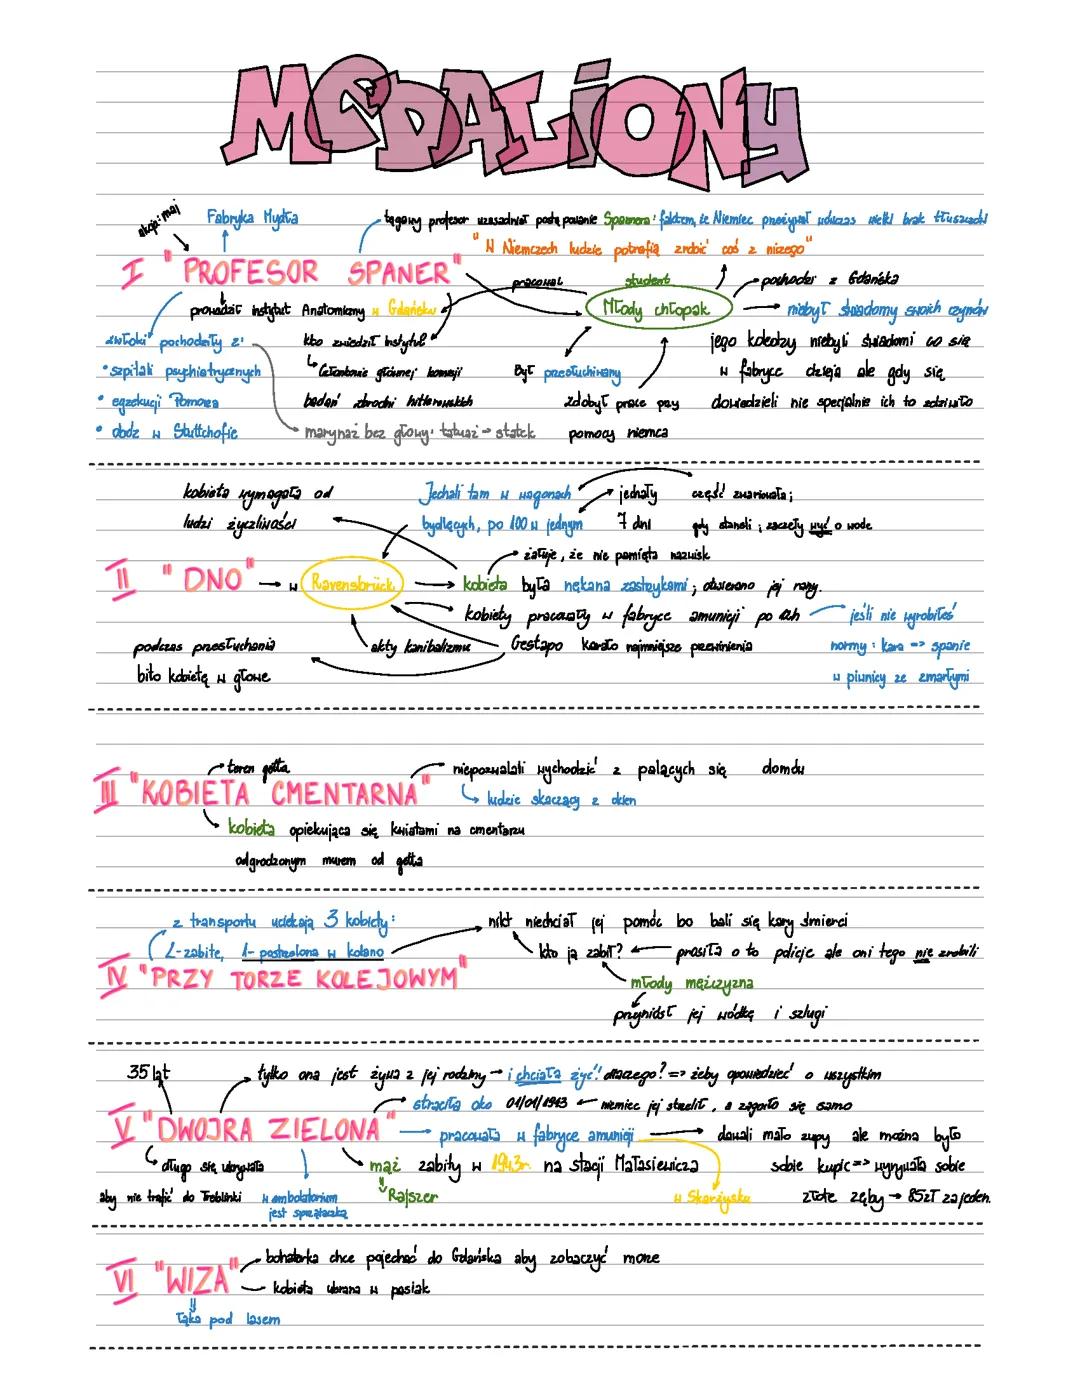 MEDALIONY
akcja: maj
Fabryka Mydła
tęgawy profesor uzasadniał postępowanie Spannera: faktem, że Niemiec przeżywał wówczas wielki brak tłuszczach
"W Niemczech ludzie potrafią zrobić coś z niczego"
I "PROFESOR SPANER"
pracował
student
Młody chłopak
pochodzi z Gdańska
prowadził instytut Anatomiczny w Gdańsku
niebył świadomy swoich czynów
zwłoki pochodziły z:
kto zwiedził instytut
jego koledzy niebyli świadomi co się
• szpitali psychiatrycznych
Członkowie głównej komisji
Był przesłuchiwany
w fabryce dzieja ale gdy się
• egzekucji Pomorza
badań zbrodni hitlerowskich
zdobył prace przy
dowiedzieli nie specjalnie ich to zdziwiło
• obóz w Stuttchofie
marynaż bez głowy: tatuaż → statek
pomocy niemca
kobieta wymagała od
Jechali tam w wagonach
jechały
część zwariowała;
ludzi życzliwości
bydlęcych, po 100 w jednym
7 dni
gdy staneli; zaczęły wyć o wode
żałuje, że nie pamięta nazwisk
II "DNO" → w Ravensbrück
kobieta była nękana zastrzykami; otwierano jej rany.
kobiety pracowały w fabryce amunicji po 12h
jeśli nie wyrobiłeś
podczas przesłuchania
akty kanibalizmu
Gestapo karało najmniejsze przewinienia
normy: kara => spanie
bito kobietę w głowe
w piwnicy ze zmarłymi
teren getta
niepozwalali wychodzić z palących się domów
III "KOBIETA CMENTARNA"
ludzie skaczący z okien
kobieta opiekująca się kwiatami na cmentarzu
odgrodzonym murem od getta
z transportu uciekają 3 kobiety:
nikt niechciał jej pomóc bo bali się kary śmierci
2-zabite, 1-postrzelona w kolano
kto ją zabił? ← prosiła o to policje ale oni tego nie zrobili
IV "PRZY TORZE KOLEJOWYM"
młody mężczyzna
przyniósł jej wódkę i szlugi
35 lat
tylko ona jest żywa z jej rodziny → i chciała żyć! dlaczego? => żeby opowiedzieć o wszystkim
straciła oko 01/01/1943 ← niemiec jej strzelił, a zagoiło się samo
V "DWOJRA ZIELONA"
pracowała w fabryce amunicji
dawali mało zupy ale można było
długo się ukrywała
mąż zabity w 1943r. na stacji Małasiewicza
sobie kupić => wyrywała sobie
aby nie trafić do Treblinki
w ambolatorium
jest sprzątaczką
Rajszer
w Skarżysku
złote zęby → 85zł za jeden.
bohaterka chce pojechać do Gdańska aby zobaczyć morze
VI "WIZA"
kobieta ubrana w pasiak
łąka pod lasem